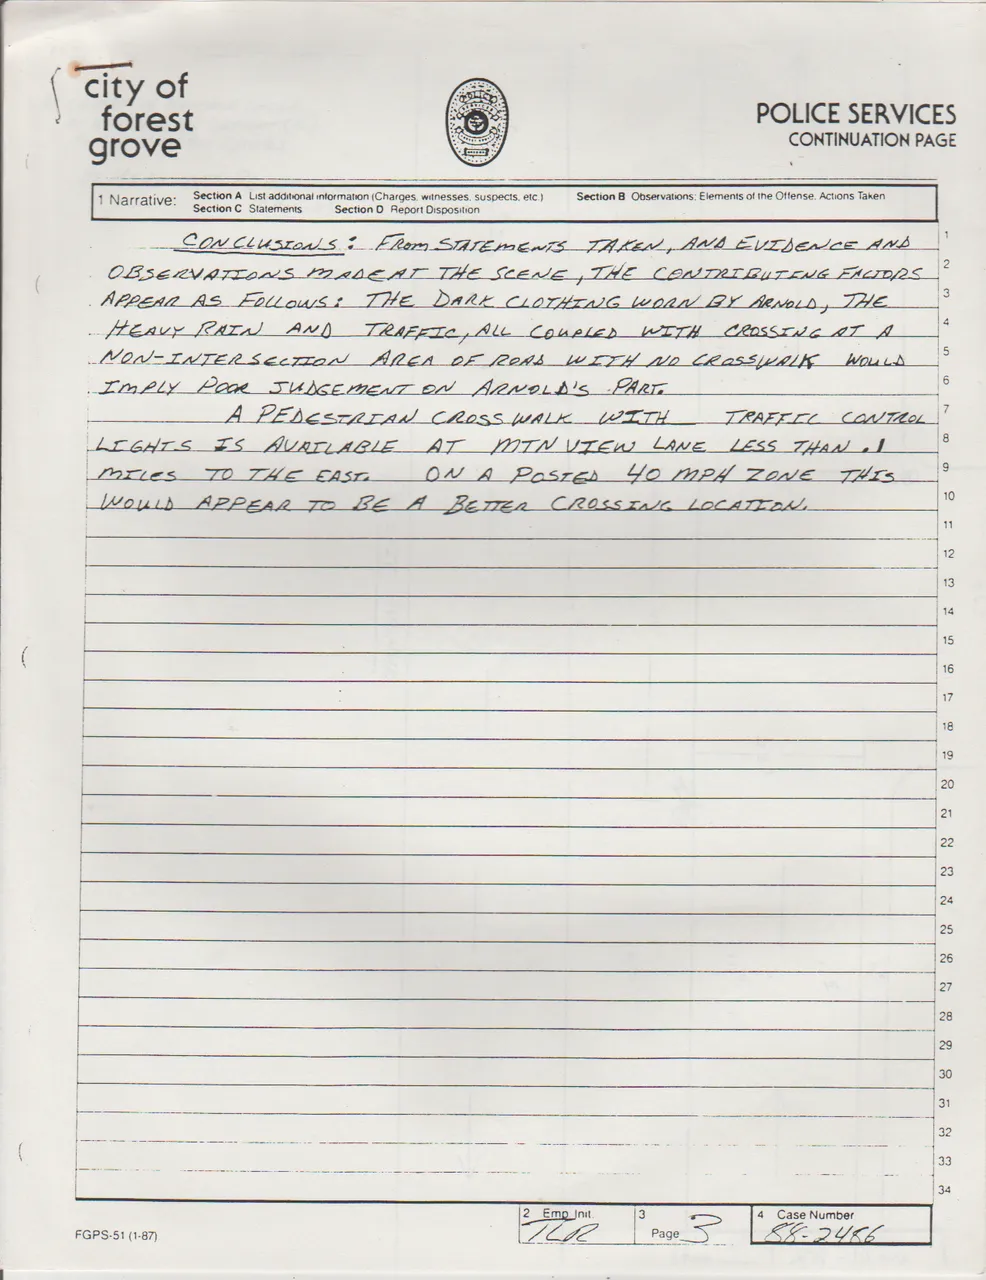 city of
forest
grove
POLICE
POLICE SERVICES
CONTINUATION PAGE
1 Narrative: Section A List additional information (Charges, witnesses, suspects, etc.) Section B Observations; Elements of the Offense, Actions Taken
Section C Statements Section D Report Disposition
CONCLUSIONS: FROM STATEMENTS TAKEN, AND EVIDENCE AND 1
OBSERVATIONS MADE AT THE SCENE, THE CONTRIBUTING FACTORS 2
APPEAR AS FOLLOWS: THE DARK CLOTHING WORN BY ARNOLD, THE 3
HEAVY RAIN AND TRAFFIC, ALL COUPLED WITH CROSSING AT A 4
NON-INTERSECTION AREA OF ROAD WITH NO CROSSWALK WOULD 5
IMPLY POOR JUDGEMENT ON ARNOLD'S PART. 6
A PEDESTRIAN CROSSWALK WITH TRAFFIC CONTROL 7
LIGHTS IS AVAILABLE AT MTN VIEW LANE LESS THAN .1 8
MILES TO THE EAST. ON A POSTED 40 MPH ZONE THIS 9
WOULD APPEAR TO BE A BETTER CROSSING LOCATION. 10
11
12
13
14
15
16
17
18
19
20
21
22
23
24
25
26
27
28
29
30
31
32
33
34
FGPS-51 (1-87)
2 Emp Init. TLR
3 Page 3
4 Case Number 88-2486